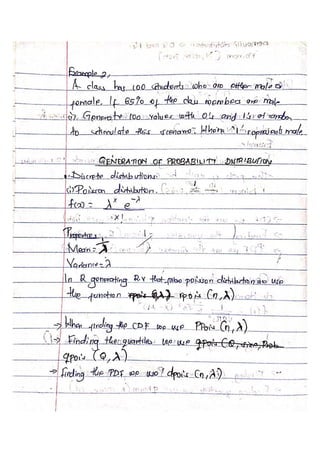 Example 2,
A class has 100 students who are either male or
female. If 65% of the class members are male
Generate 100 values with 0's and 1's at random
to stimulate this scenario. Where '1' represents male
GENERATION OF PROBABILITY DISTRIBUTION
Discrete distributions
Poisson distribution.
f(x) = λˣ e^-λ
x!
Properties:
Mean = λ
Variance = λ
In R generating RV that poisson distribution we use
the function rpois (n, λ)
→ When finding the CDF we use Ppois (n, λ)
→ Finding the quantiles we use
qpois (Q, λ)
→ finding the PDF we use dpois (n, λ)